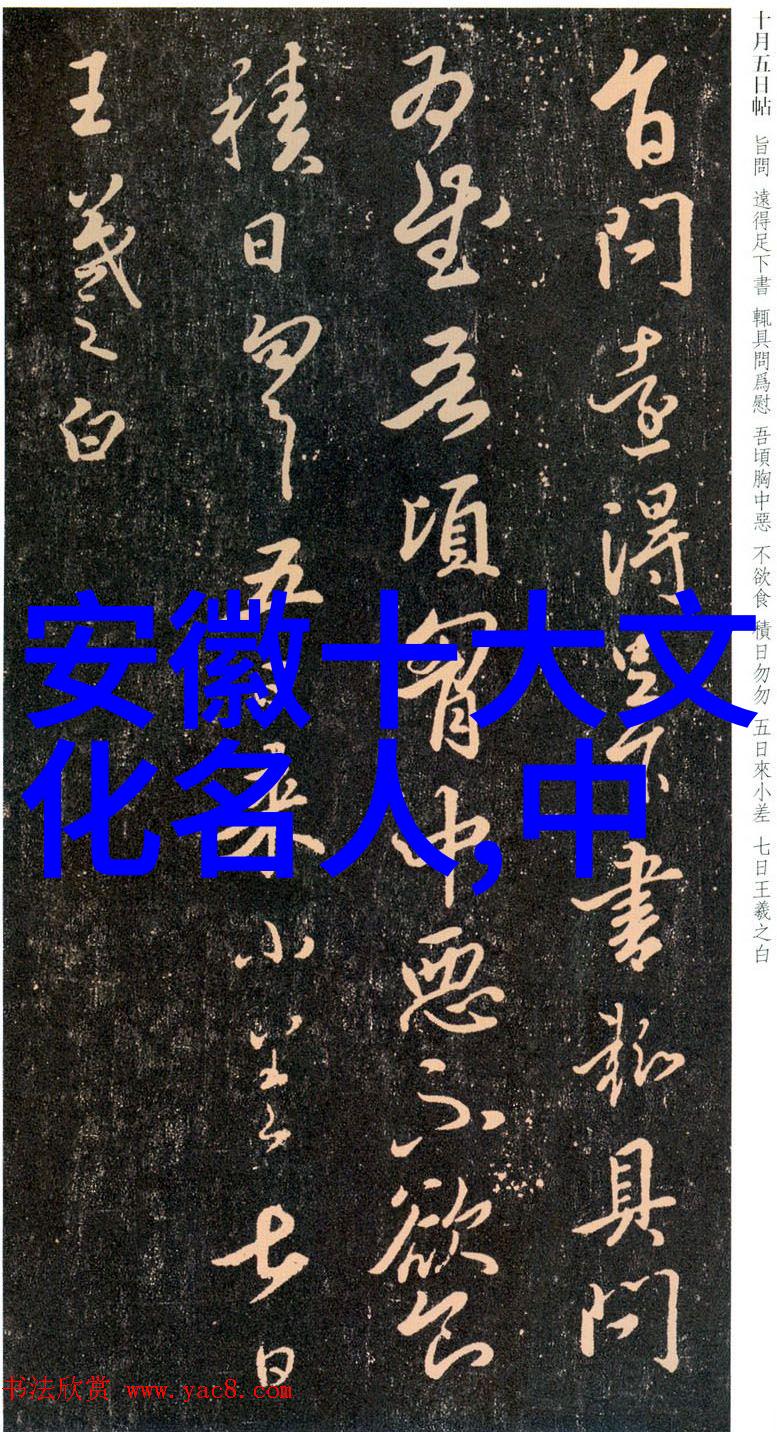 十月五日帖 旨問 遠得足下書 輒具問爲慰 吾頃胸中惡 不欲食 積日勿勿 五日來小差 七日王羲之白
旨問遠得足下書輒具問
爲慰吾頃胷中惡不欲食
積日勿勿五日來小差七日
王羲之白
安徽十大文
化名人,中
书法欣赏 www.yac8.com